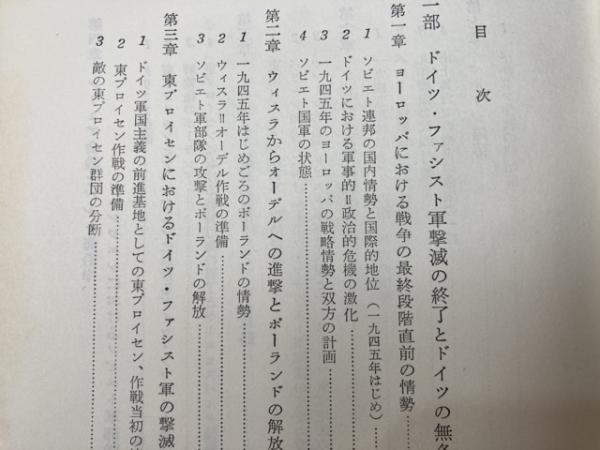 目次
一部 ドイツ・ファシスト軍撃滅の終了とドイツの無
第一章 ヨーロッパにおける戦争の最終段階直前の情勢
1 ソビエト連邦の国内情勢と国際的地位(一九四五年はじめ)
2 ドイツにおける軍事的=政治的危機の激化
3 一九四五年のヨーロッパの戦略情勢と双方の計画
4 ソビエト国軍の状態
第二章 ウィスラからオーデルへの進撃とポーランドの解放
1 一九四五年はじめごろのポーランドの情勢
2 ウィスラ=オーデル作戦の準備
3 ソビエト軍部隊の攻撃とポーランドの解放
第三章 東プロイセンにおけるドイツ・ファシスト軍の撃滅
1 ドイツ軍国主義の前進基地としての東プロイセン、作戦当初の
2 東プロイセン作戦の準備
3 敵の東プロイセン群団の分断